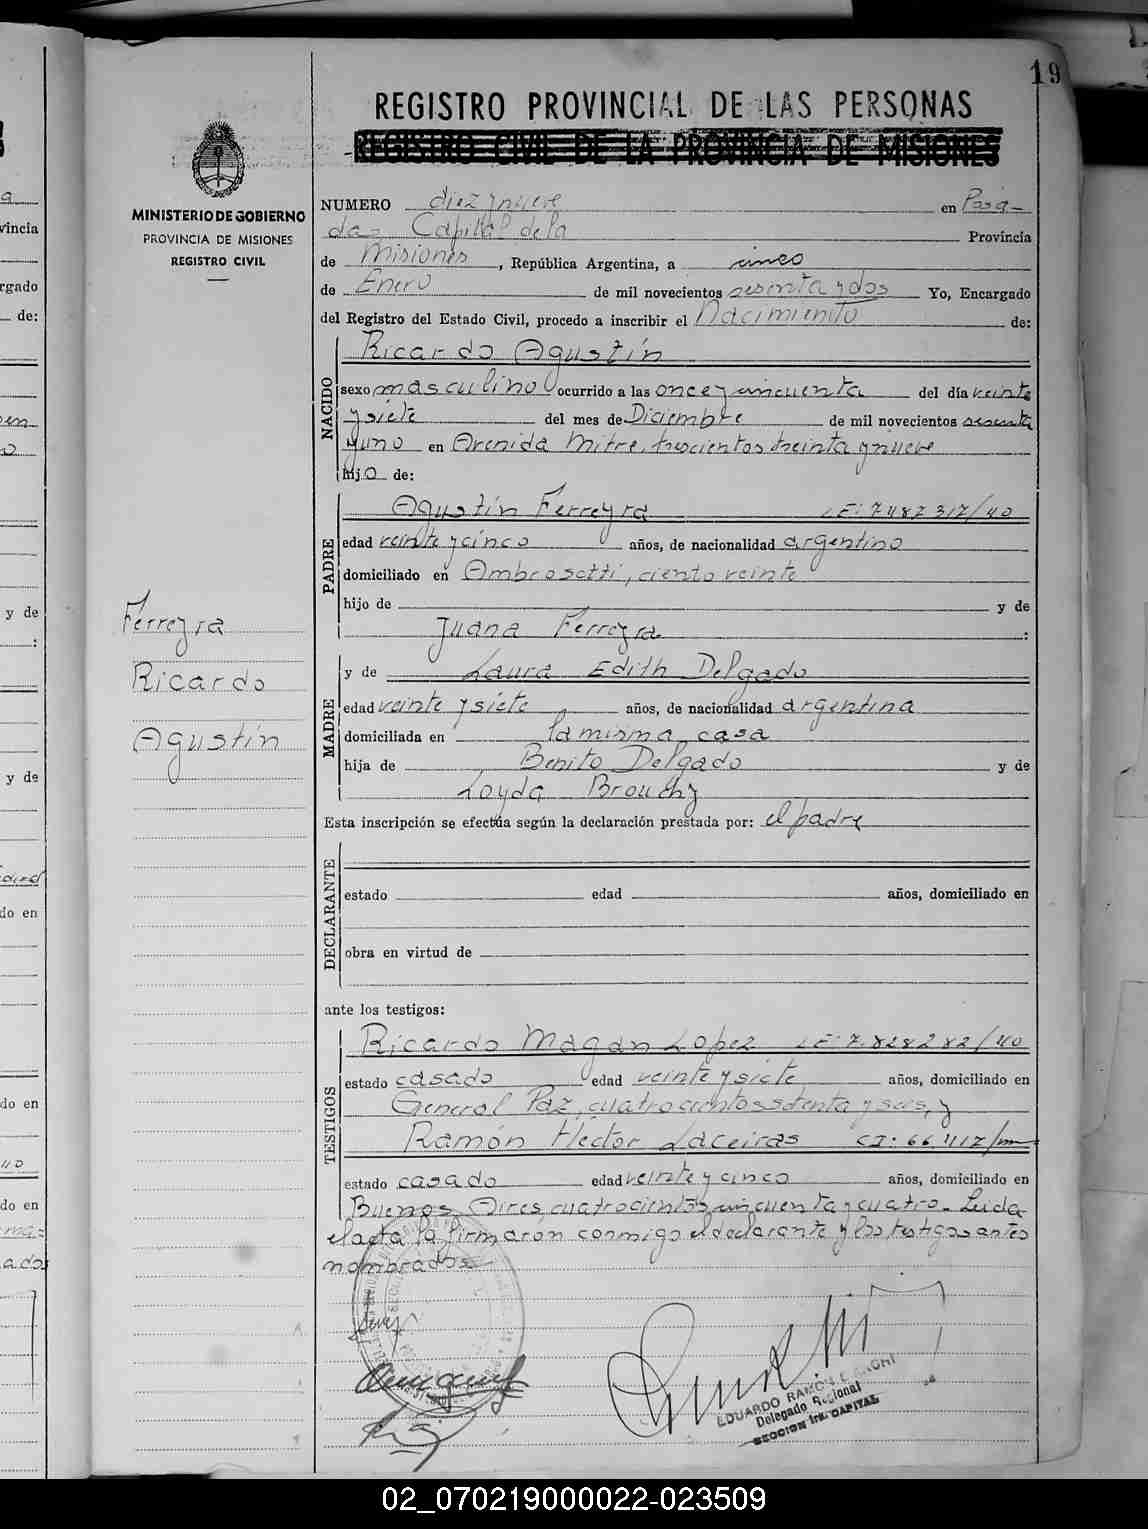 19
REGISTRO PROVINCIAL DE LAS PERSONAS
REGISTRO CIVIL DE LA PROVINCIA DE MISIONES
MINISTERIO DE GOBIERNO
PROVINCIA DE MISIONES
REGISTRO CIVIL
NUMERO diez y nueve en Posa-
das Capital de la Provincia
de Misiones, República Argentina, a cinco
de Enero de mil novecientos sesenta y dos Yo, Encargado
del Registro del Estado Civil, procedo a inscribir el Nacimiento de:
NACIDO
Ricardo Agustín
sexo masculino ocurrido a las once y cincuenta del día veinte
y siete del mes de Diciembre de mil novecientos sesenta
y uno en Avenida Mitre, trescientos treinta y nueve
hijo de:
PADRE
Agustín Ferreyra LE: 7487317/40
edad veinte y cinco años, de nacionalidad argentino
domiciliado en Ambrosetti, ciento veinte
hijo de y de
Juana Ferreyra :
Ferreyra
Ricardo
Agustín
MADRE
y de Laura Edith Delgado
edad veinte y siete años, de nacionalidad argentina
domiciliada en la misma casa
hija de Benito Delgado y de
Loyda Brouchy
Esta inscripción se efectúa según la declaración prestada por: el padre
DECLARANTE
estado edad años, domiciliado en
obra en virtud de
ante los testigos:
TESTIGOS
Ricardo Magan Lopez LE: 7.828282/40
estado casado edad veinte y siete años, domiciliado en
General Paz, cuatrocientos setenta y seis, y
Ramón Héctor Laceiras CI: 66.417/
estado casado edad veinte y cinco años, domiciliado en
Buenos Aires, cuatrocientos cincuenta y cuatro. Leida
el acta la firmaron conmigo el declarante y los testigos antes
nombrados.
EDUARDO RAMÓN
Delegado Regional
SECCION 1ra. CAPITAL
02_070219000022-023509